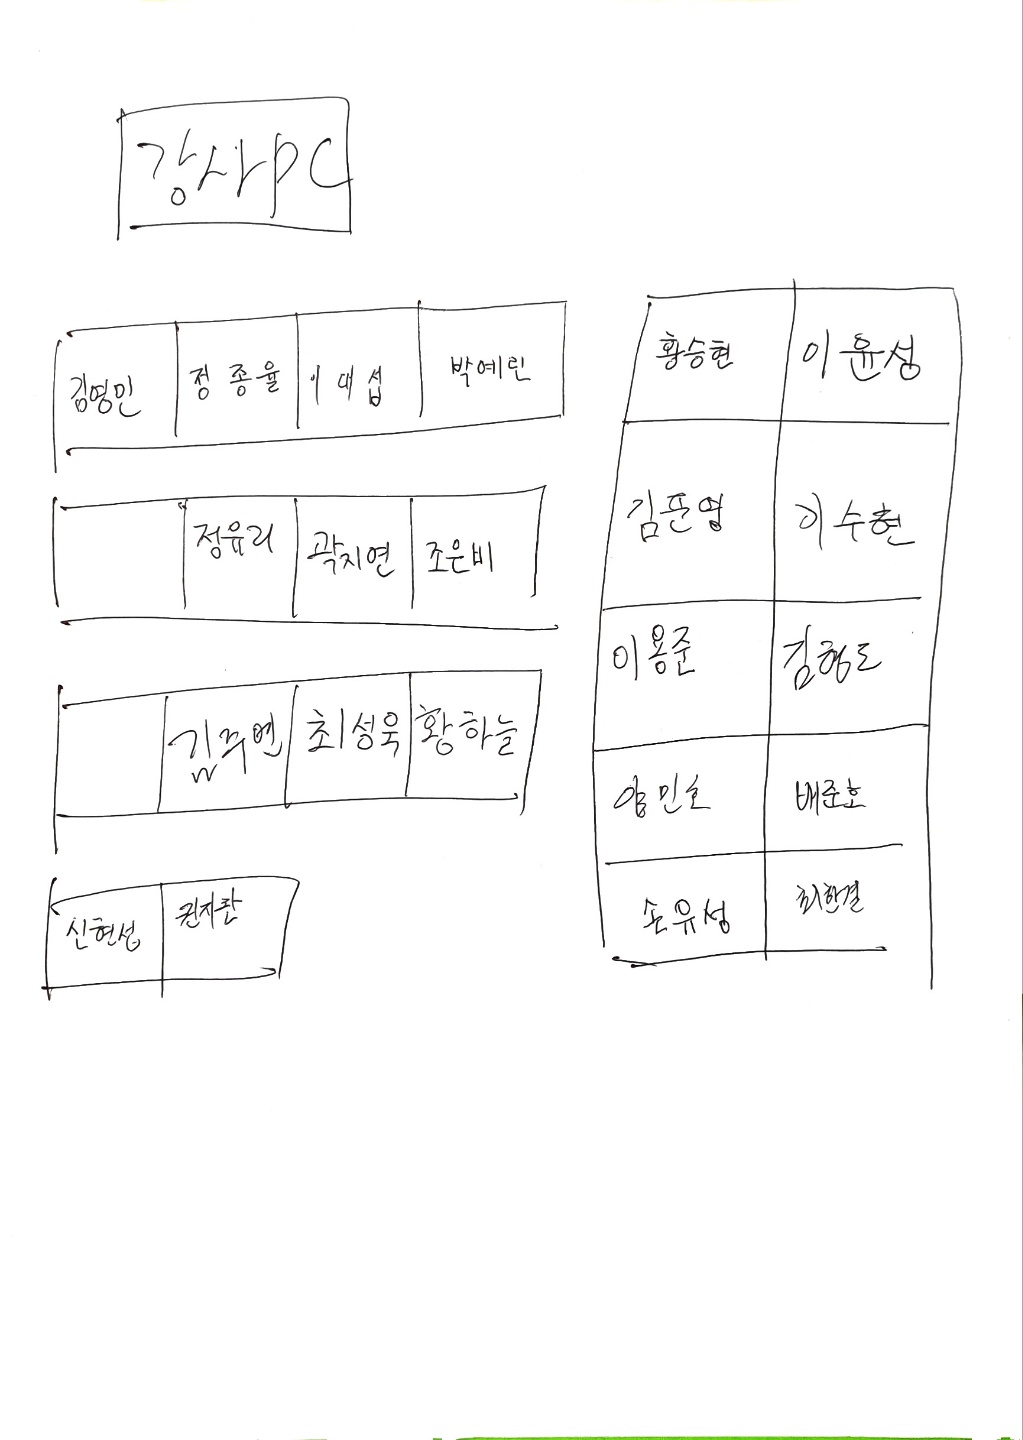 강사PC
김영민 정종율 이대섭 박예린
정유리 곽지연 조은비
최성욱 황하늘
신현성 권지란
황승현 이윤성
김준영 이수현
이용준 김형도
양민호 배준호
손유성 최한결